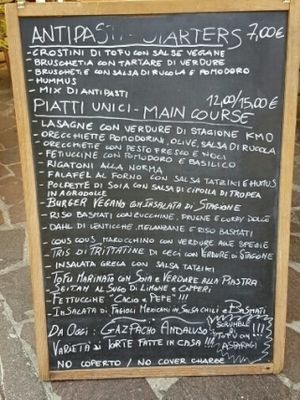 ANTIPASTI - STARTERS 7,00€
- CROSTINI DI TOFU CON SALSE VEGANE
- BRUSCHETTA CON TARTARE DI VERDURE
- BRUSCHETTE CON SALSA DI RUCOLA E POMODORO
- HUMMUS
- MIX DI ANTIPASTI
12,00/15,00€
PIATTI UNICI - MAIN COURSE
- LASAGNE CON VERDURE DI STAGIONE KM0
- ORECCHIETTE POMODORINI, OLIVE, SALSA DI RUCOLA
- ORECCHIETTE CON PESTO FRESCO E NOCI
- FETTUCCINE CON POMODORO E BASILICO
- RIGATONI ALLA NORMA
- FALAFEL AL FORNO CON SALSA TATZIKI E HUMUS
- POLPETTE DI SOIA CON SALSA DI CIPOLLA DI TROPEA
IN AGRODOLCE
- BURGER VEGANO CON INSALATA DI STAGIONE
- RISO BASMATI CON ZUCCHINE, PRUGNE E CURRY DOLCE
- DAHL DI LENTICCHIE, MELANZANE E RISO BASMATI
- COUS COUS MAROCCHINO CON VERDURE ALLE SPEZIE
- TRIS DI TRITTATINE DI CECI CON VERDURE DI STAGIONE
- INSALATA GRECA CON SALSA TATZIKI
- TOFU MARINATO CON SOIA E VERDURE ALLA PIASTRA
- SEITAN AL SUGO DI LIMONE E CAPPERI
- FETTUCCINE "CACIO e PEPE" !!!
- INSALATA DI FAGIOLI MESSICANI IN SALSA CHILI E BASMATI
DA OGGI: GAZPACHO ANDALUSO!
SCRUMBLE DI TOFU CON ASPARAGI !!!
VARIETÀ DI TORTE FATTE IN CASA !!!
NO COPERTO / NO COVER CHARGE